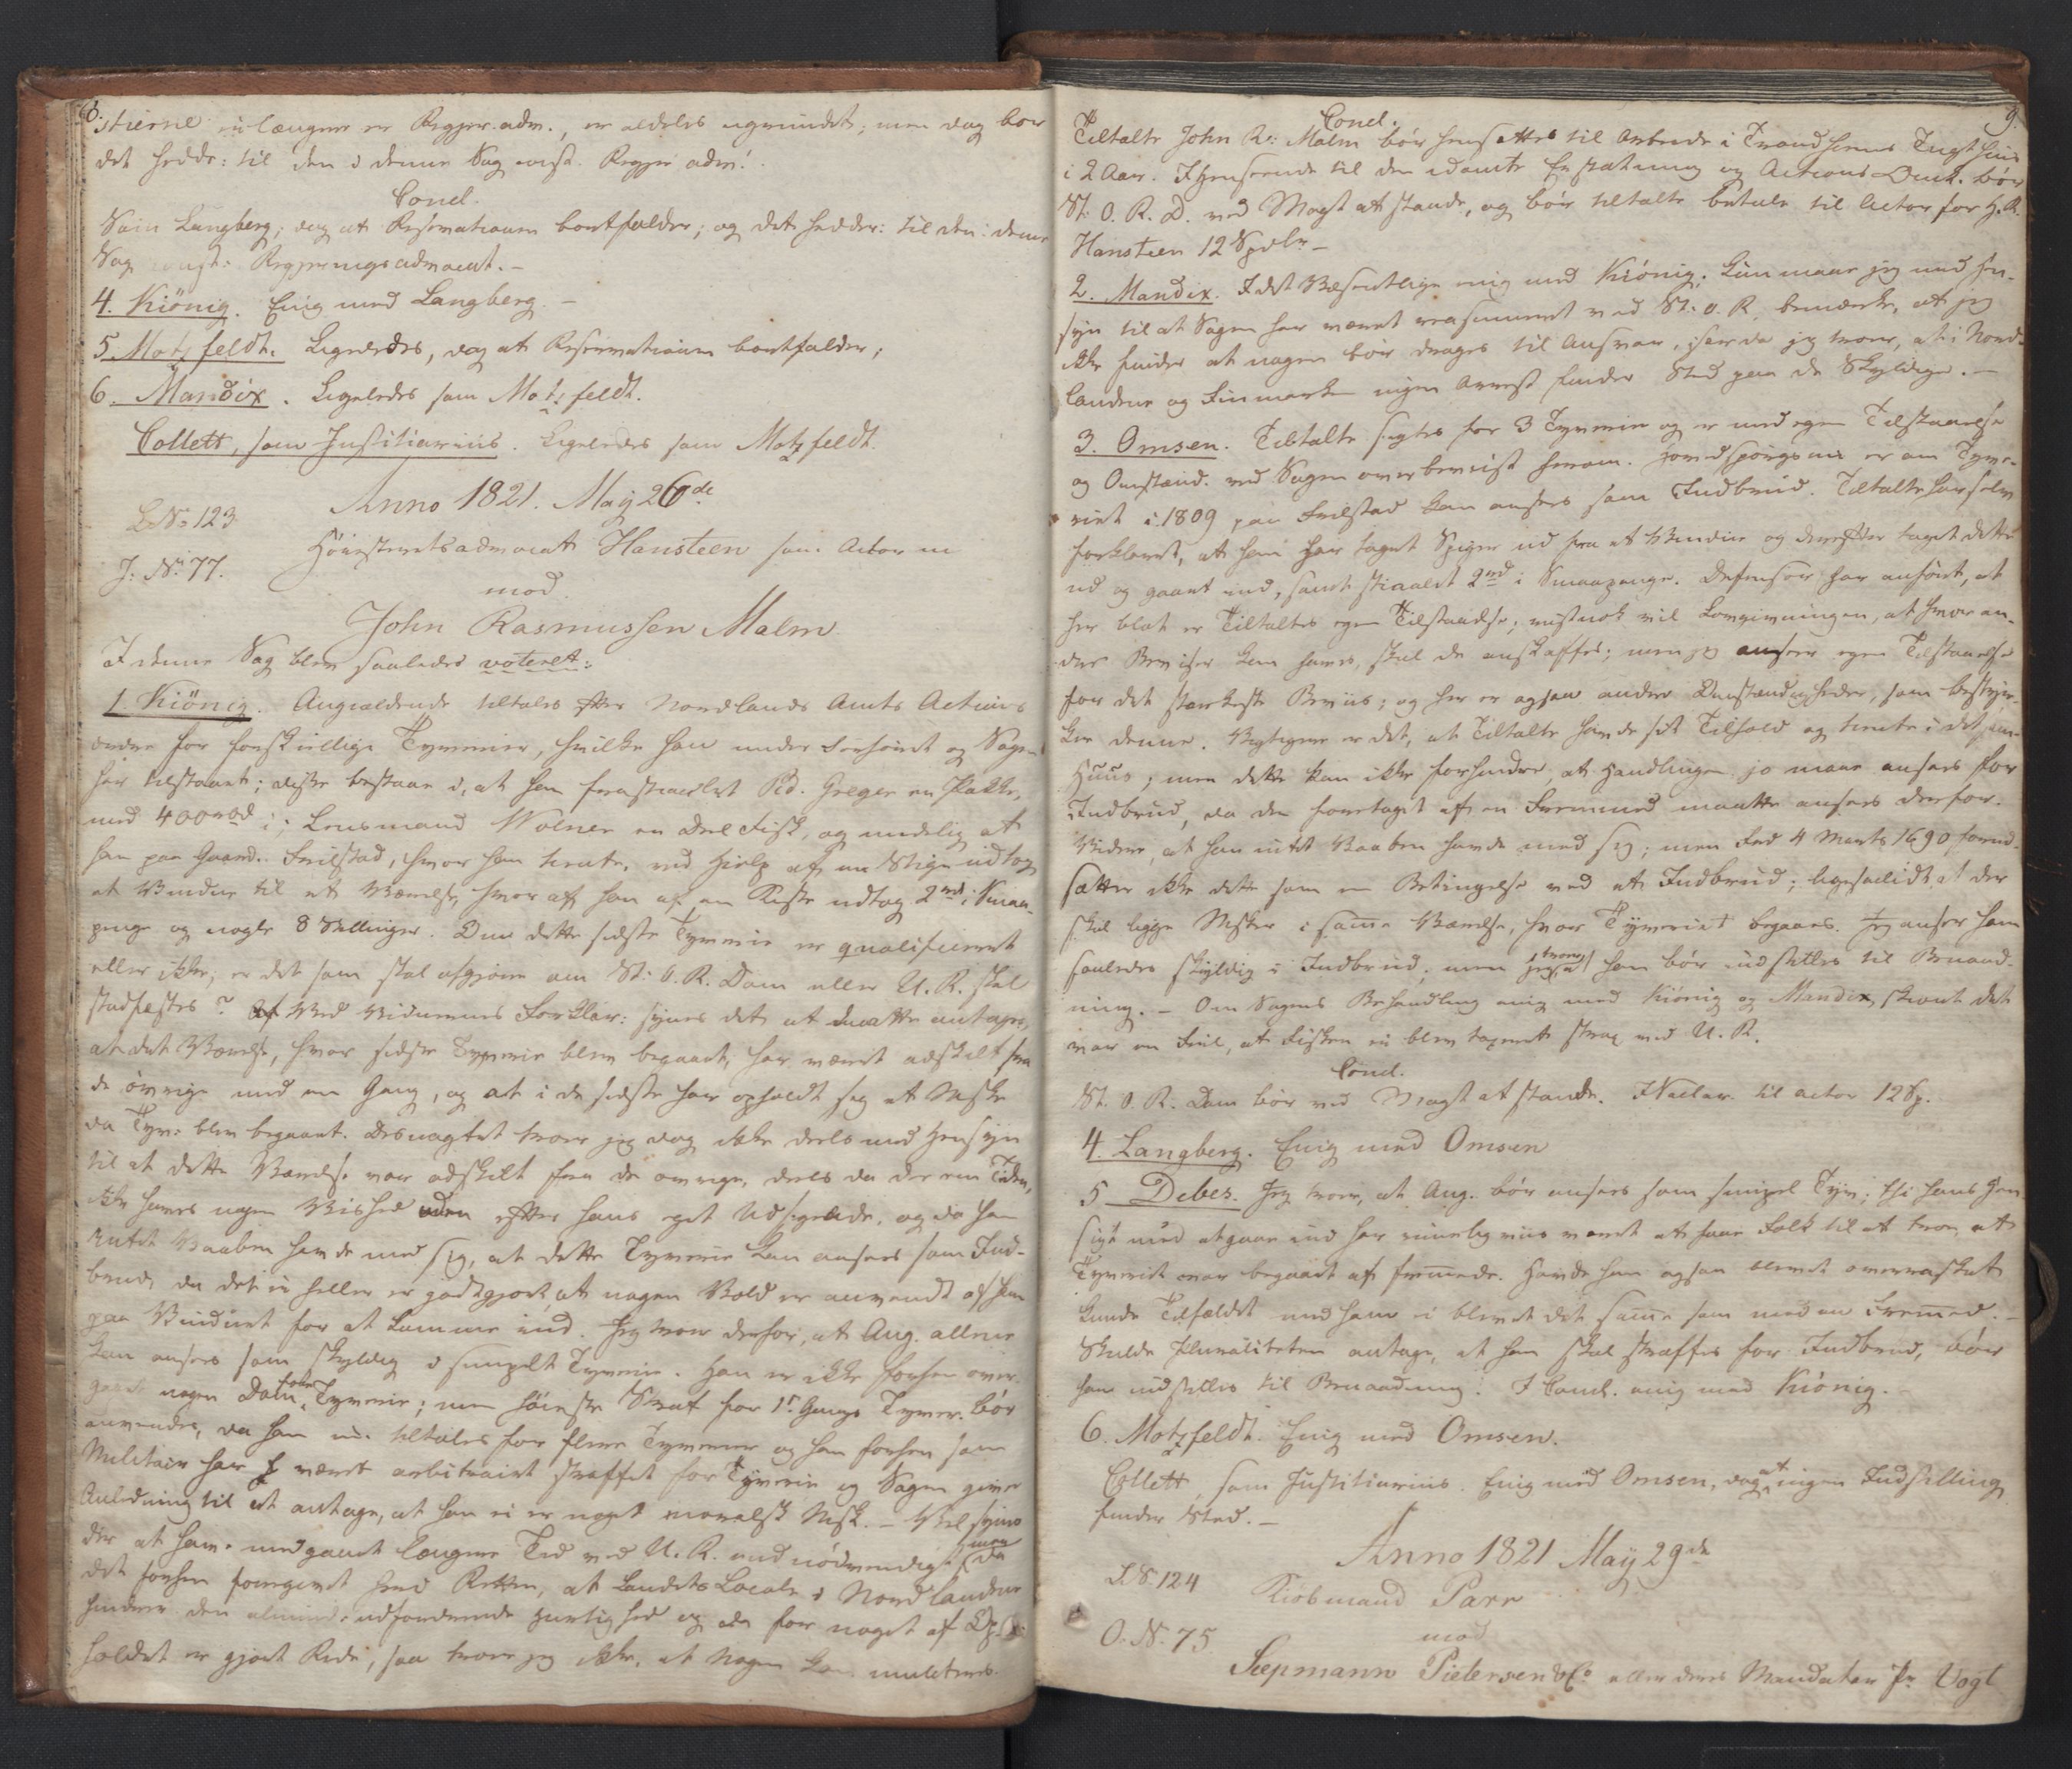 8.
stierne ei længere er Regjer. adv., er aldeles ugrundet; men dog bør
det hedde: til den i denne Sag const. Regjer adv.
Concl.
Som Langberg; dog at Reservationen bortfalder; og det hedder: til den i denne
Sag const: Regjeringsadvocat. –
4. Kiönig. Enig med Langberg. –
5 Motzfeldt. Ligeledes, dog at Reservationen bortfalder;
6. Mandix. Ligeledes som Motzfeldt.
Collett, som Justitiarius. Ligeledes som Motzfeldt.
Anno 1821. May 26de
L. No 123
Höiesteretsadvocat Hansteen som Actor
J: No 77.
mod
John Rasmussen Malm
I denne Sag blev saaledes voteret:
1. Kiönig. Angieldende tiltales efter Nordlands Amts Actions
ordre for forskiellige Tyverier, hvilke han under Forhöret og Sagen
har tilstaaet; disse bestaae i, at han frastiaalet Pd. Greger en Pakke,
med 400 i; Lensmand Wolner en Deel Fisk, og endelig at
han paa Gaard. Frilstad, hvor han tiente, ved Hielp af en Stige udtog
et Vindue til et Værelse, hvor af han af en Kiste udtog 2 i Smaa-
penge og nogle 8 Skillinger. Om dette sidste Tyverie er qualificeret
eller ikke, er det som skal afgjöre om St: O. R. Dom eller U. R. skal
stadfæstes? Ved Vidnernes Forklar: synes det at maatte antages,
at det Værelse, hvor sidste Tyverie blev begaaet, har været adskilt fra
de övrige med en Gang, og at i de sidste har opholdt sig et Mske
da Tyv: blev begaaet. Desuagtet troer jeg dog ikke deels med Hensyn
til at dette Værelse var adskilt fra de övrige, deels da der om Tiden,
ikke haves nogen Vished uden efter hans eget Udsigende, og da han
intet Vaaben havde med sig, at dette Tyverie kan ansees som Ind-
brud, da det ei heller er godtgjort, at nogen Vold er anvendt af ham
paa Vinduet for at komme ind. Jeg troer derfor, at Ang. allene
kan ansees som skyldig i simpelt Tyverie. Han er ikke forhen over-
gaaet nogen Dom for Tyverie; men höieste Straf for 1r. Gangs Tyver. bör
anvendes, da han nu tiltales for flere Tyverier og han forhen som
Militair har været arbitrairt straffet for Tyverie og Sagen giver
Anledning til at antage, at han ei er noget moralsk Msk. – Vel synes
der at have medgaaet længere Tid ved U. R. end nödvendigt men da
det forhen foregivet hend Retten, at Landets Locale i Nordlandene
hindrer den alminde. udfordrende Hurtighed og da for noget af Op-
holdet er gjort Rede, saa troer jeg ikke, at Nogen kan mulcteres.
9.
Concl.
Tiltalte John R: Malm bör hensættes til Arbeide i Trondhiems Tugthuus
i 2 Aar. I Henseende til den idömte Erstatning og Actions Omk. bör
St. O. R. D. ved Magt at stande, og bör tiltalte betale til Actor for H. R.
Hansteen 12 Spdlr –
2. Mandix. I det Væsentlige enig med Kiönig. Kun maae jeg med Hen-
syn til at Sagen har været reasumeret ved St: O. R. bemærke, at jeg
ikke finder at nogen bör drages til Ansvar, især da jeg troer, at i Nord-
landene og Finmarken ingen Arrest finder Sted paa de Skyldige. –
3. Omsen. Tiltalte sigtes for 3 Tyverier og er ved egen Tilstaaelse
og Omstænd. ved Sagen overbeviist herom. Hovedspörgsm. er om Tyve-
riet i 1809 paa Frilstad kan ansees som Indbrud. Tiltalte har selv
forklaret, at han har taget Spiger ud fra et Vindue og derefter taget dette
ud og gaaet ind, samt stiaalet 2 i Smaapenge. Defensor har anfört, at
her blot er Tiltaltes egen Tilstaaelse; vistnok vil Lovgivningen, at hvor an-
dre Beviser kan haves, skal de anskaffes; men jeg anseer egen Tilstaaelse
for det stærkeste Beviis; og her er ogsaa andre Omstændigheder, som bestyr-
ke denne. Vigtigere er det, at Tiltalte havde sit Tilhold og tiente i det samme
Huus; men dette kan ikke forhindre, at Handlingen jo maae ansees for
Indbrud, da den foretaget af en Fremmed maatte ansees derfor.
Videre, at han intet Vaaben havde med sig; men Frd 4 Marts 1690 forud-
sætter ikke dette som en Betingelse ved et Indbrud; ligesaalidt at der
skal ligge Msker i samme Værelse, hvor Tyveriet begaaes. Jeg anser ham
saaledes skyldig i Indbrud; men troer han bör indstilles til Benaad-
ning. – Om Sagens Behandling enig med Kiönig og Mandix, skiönt det
var en Feil, at Fisken ei blev taxeret strax ved U. R.
Concl.
St. O. R. Dom bör ved Magt at stande. I Salar. til Actor 12 Sp.
4. Langberg. Enig med Omsen
5 Debes. Jeg troer, at Ang. bör ansees som simpel Tyv; thi hans Hen-
sigt med at gaae ind har rimeligviis været at faae Folk til at troe, at
Tyveriet var begaaet af fremmede. Havde han ogsaa blevet overrasket
kunde Tilfældet med ham ei blevet det samme som med en Fremmed. –
Skulde Pluraliteten antage, at han skal straffes for Indbrud, bör
han indstilles til Benaadning. I Concl. enig med Kiönig. –
6. Motzfeldt. Enig med Omsen.
Collett, som Justitiarius. Enig med Omsen, dog at ingen Indstilling
finder Sted. –
Anno 1821 May 29de
L. N. 124
Kiöbmand Parr
O. N. 75
mod
Siepmann Pietersen & Co eller deres Mandatar Pr Vogt